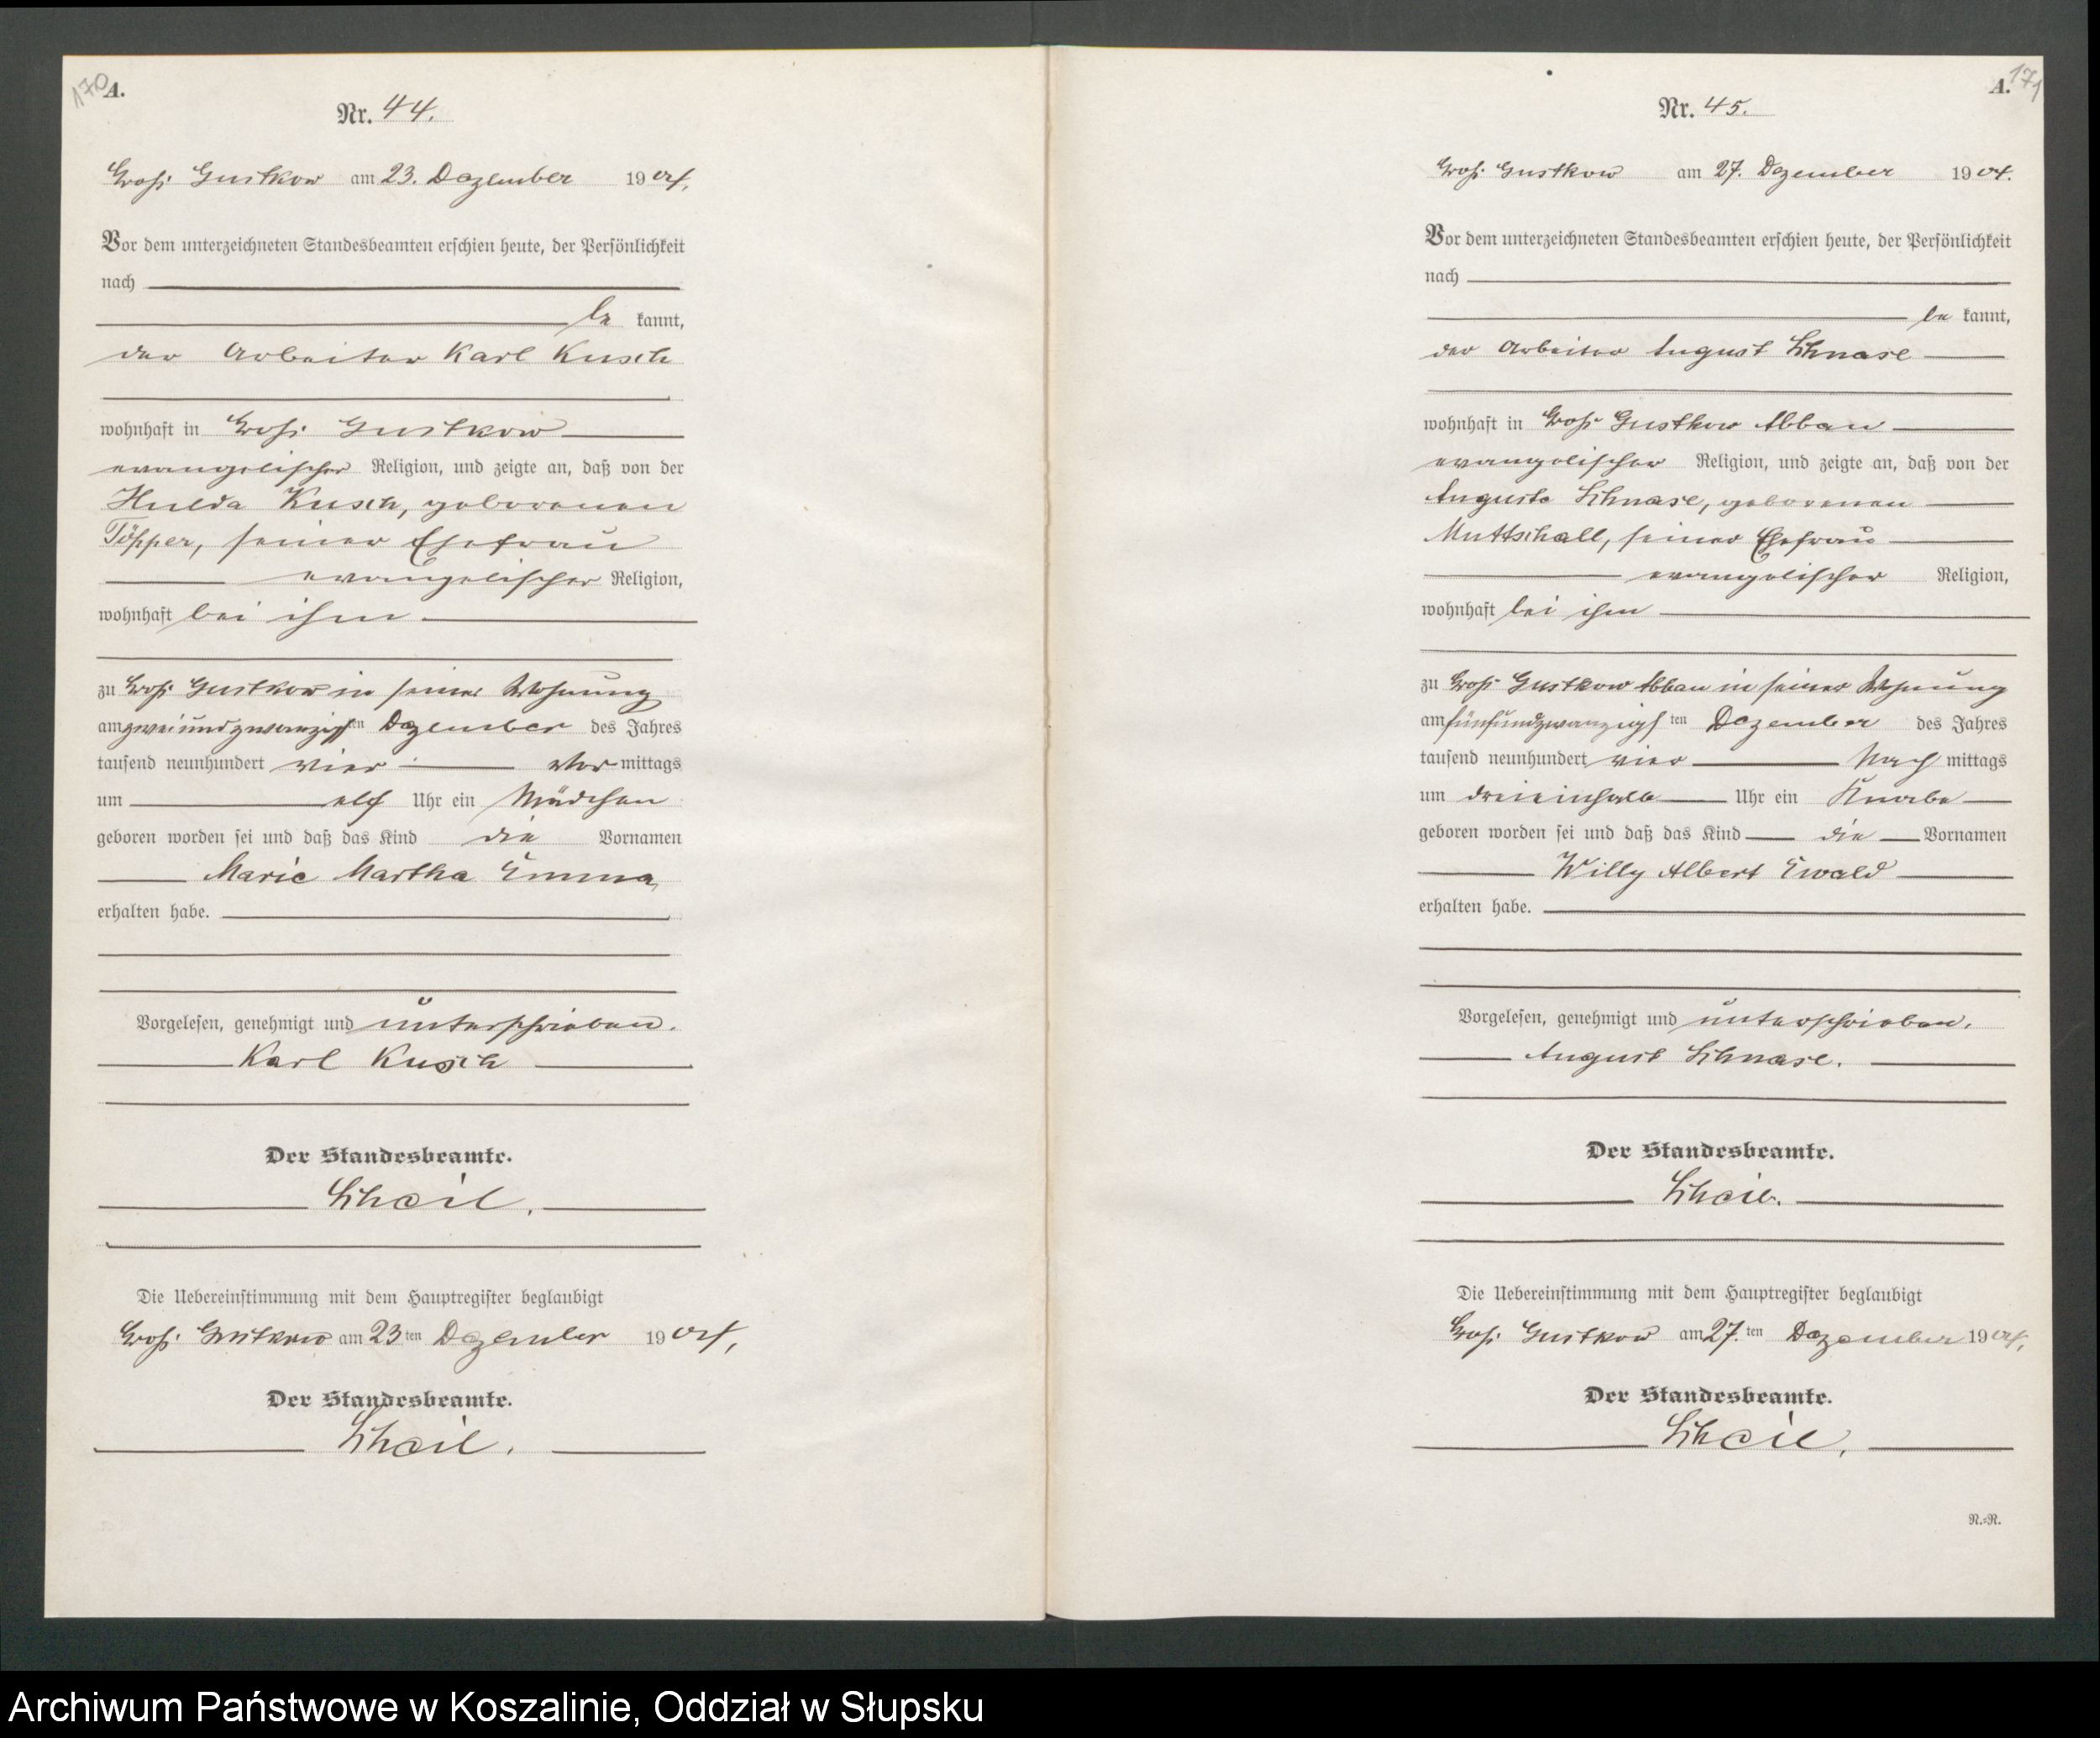 170
A.
Nr. 44.
Groß Gustkow am 23. Dezember 1904.
Vor dem unterzeichneten Standesbeamten erschien heute, der Persönlichkeit
nach
be kannt,
der Arbeiter Karl Kusch
wohnhaft in Groß Gustkow
evangelischer Religion, und zeigte an, daß von der
Hulda Kusch, geborenen
Töpper, seiner Ehefrau
evangelischer Religion,
wohnhaft bei ihm
zu Groß Gustkow in seiner Wohnung
am zweiundzwanzigsten Dezember des Jahres
tausend neunhundert vier Vor mittags
um elf Uhr ein Mädchen
geboren worden sei und daß das Kind die Vornamen
Marie Martha Emma
erhalten habe.
Vorgelesen, genehmigt und unterschrieben.
Karl Kusch
Der Standesbeamte.
Scheil.
Die Uebereinstimmung mit dem Hauptregister beglaubigt
Groß Gustkow am 23ten Dezember 1904,
Der Standesbeamte.
Scheil.
171
A.
Nr. 45.
Groß Gustkow am 27. Dezember 1904.
Vor dem unterzeichneten Standesbeamten erschien heute, der Persönlichkeit
nach
be kannt,
der Arbeiter August Schnase
wohnhaft in Groß Gustkow Abbau
evangelischer Religion, und zeigte an, daß von der
Auguste Schnase, geborenen
Muttschall, seiner Ehefrau
evangelischer Religion,
wohnhaft bei ihm
zu Groß Gustkow Abbau in seiner Wohnung
am fünfundzwanzigsten Dezember des Jahres
tausend neunhundert vier Nach mittags
um dreieinhalb Uhr ein Knabe
geboren worden sei und daß das Kind die Vornamen
Willy Albert Ewald
erhalten habe.
Vorgelesen, genehmigt und unterschrieben.
August Schnase.
Der Standesbeamte.
Scheil.
Die Uebereinstimmung mit dem Hauptregister beglaubigt
Groß Gustkow am 27.ten Dezember 1904,
Der Standesbeamte.
Scheil.
R.=R.
Archiwum Państwowe w Koszalinie, Oddział w Słupsku